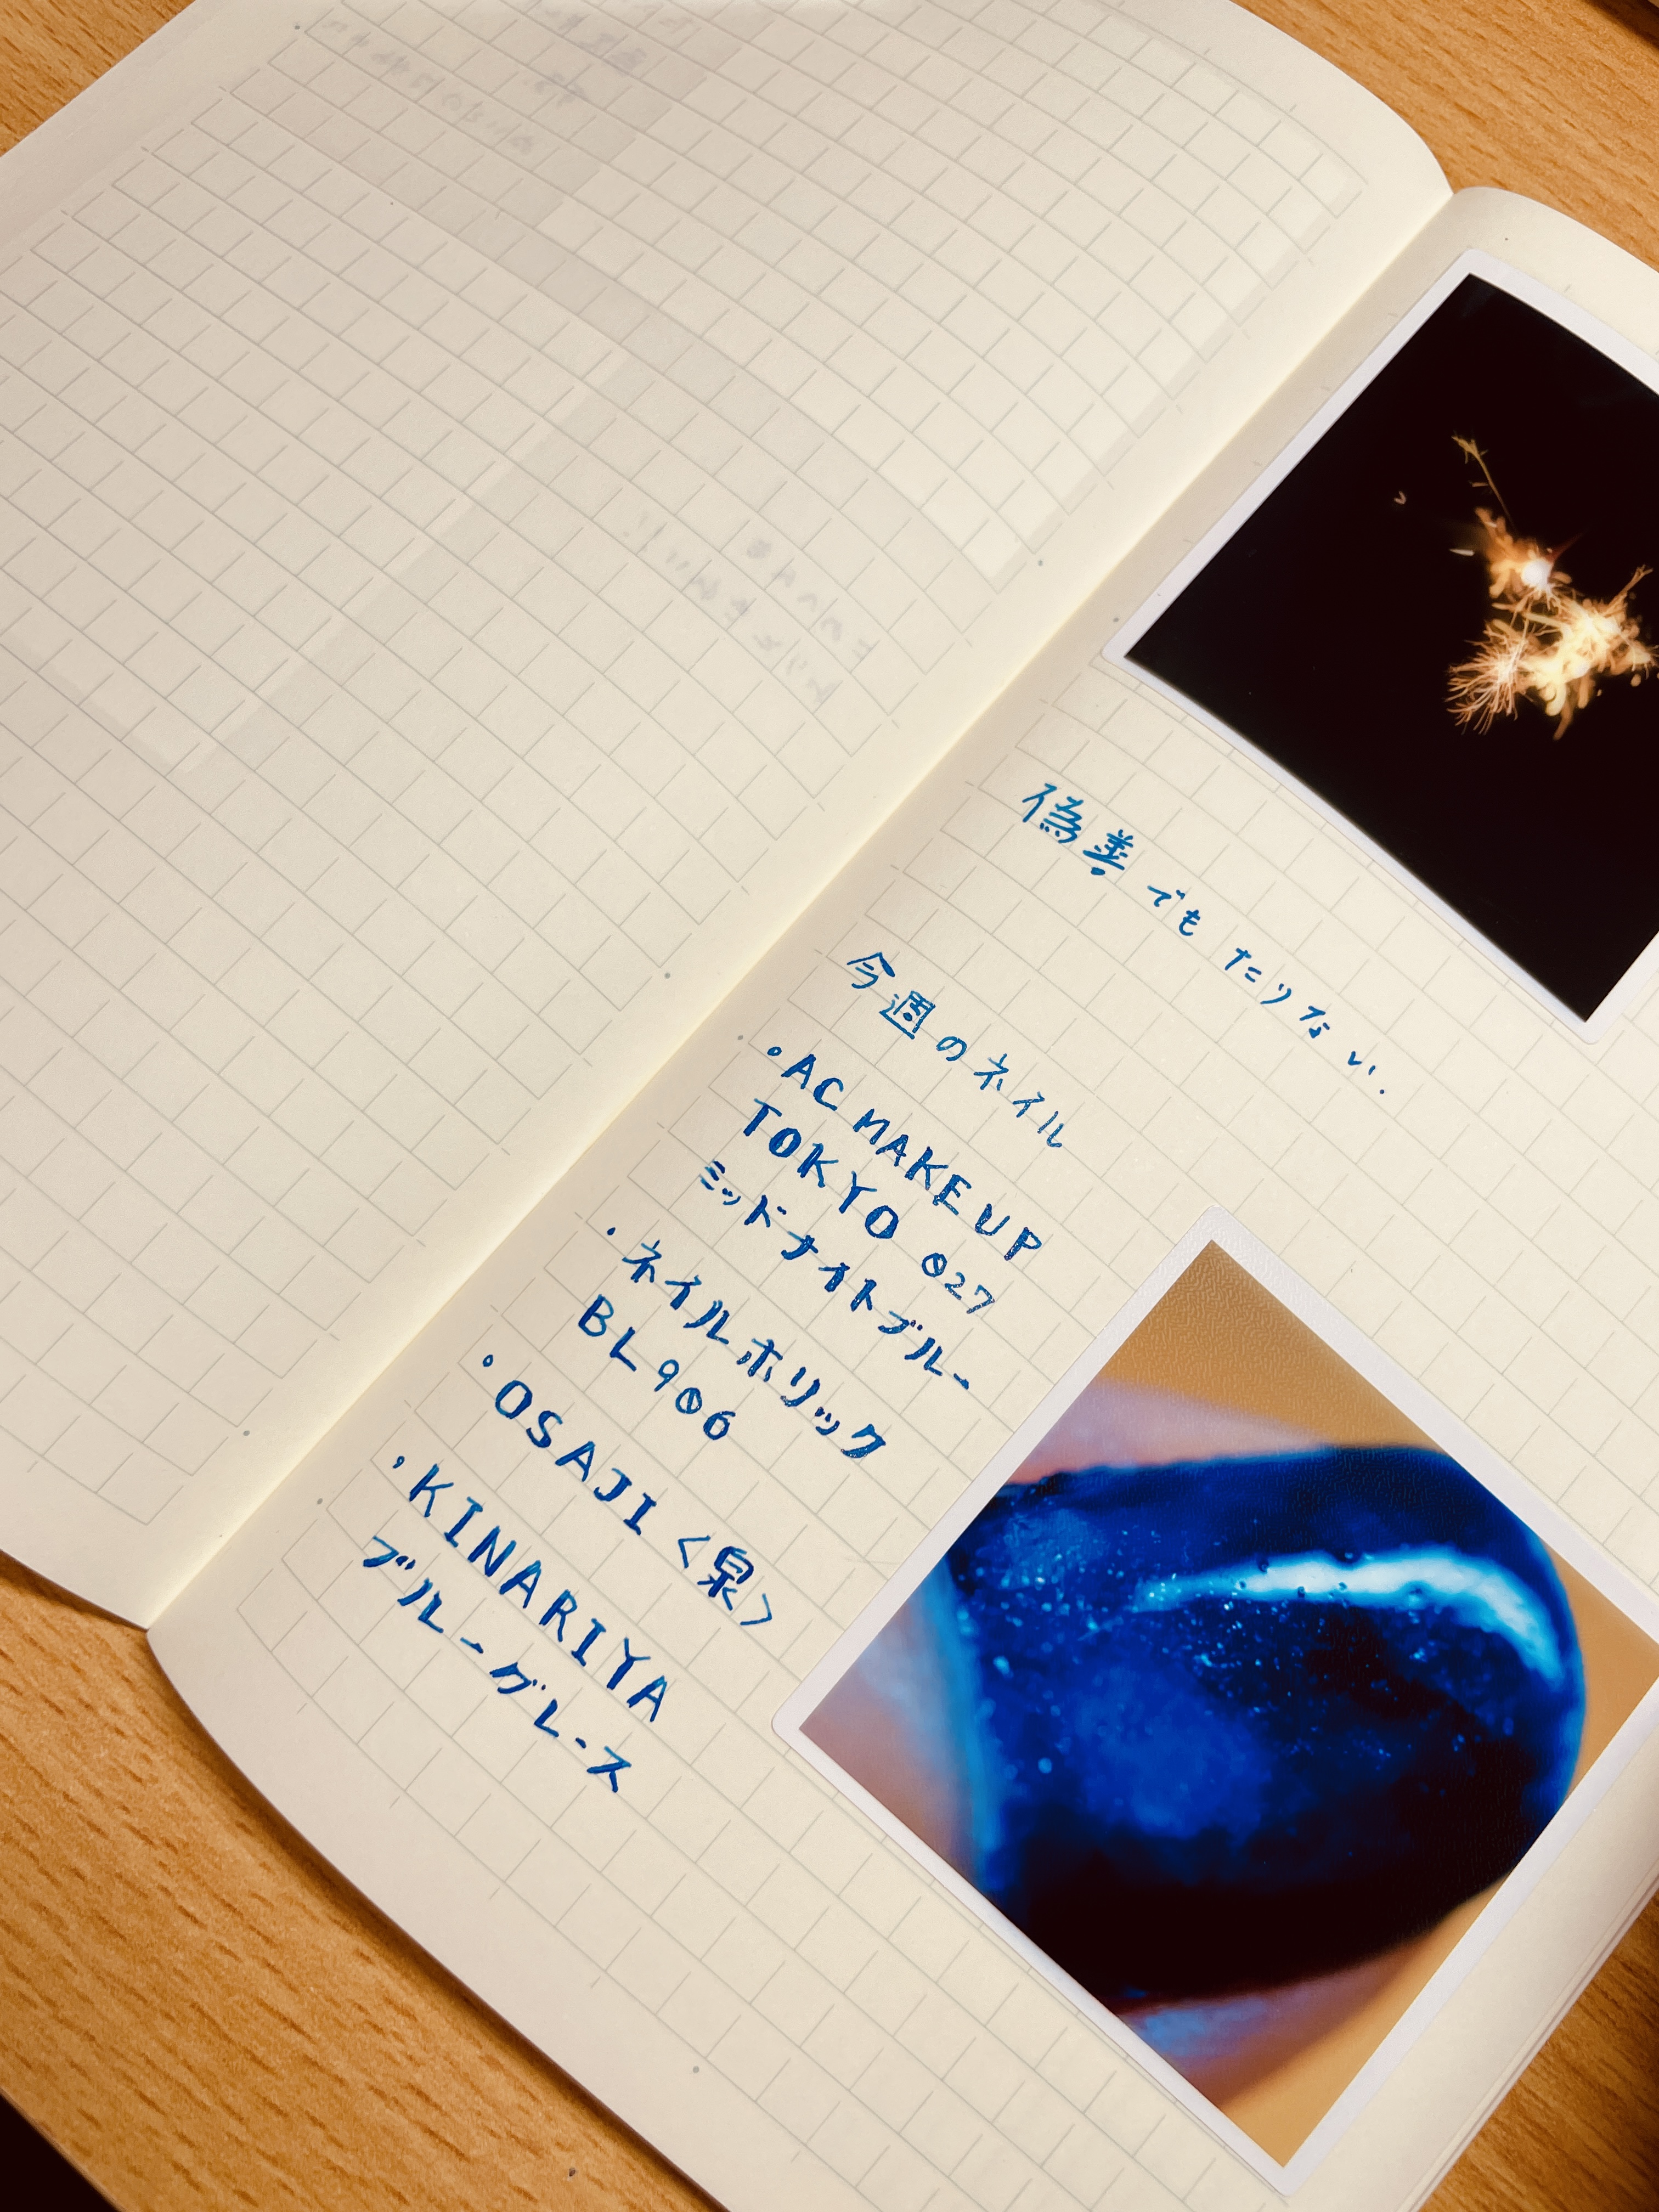 偽善でもたりない.
今週のネイル
・AC MAKEUP
TOKYO 027
ミッドナイトブルー
・ネイルホリック
BL906
・OSAJI〈泉〉
・KINARIYA
ブルーグレース